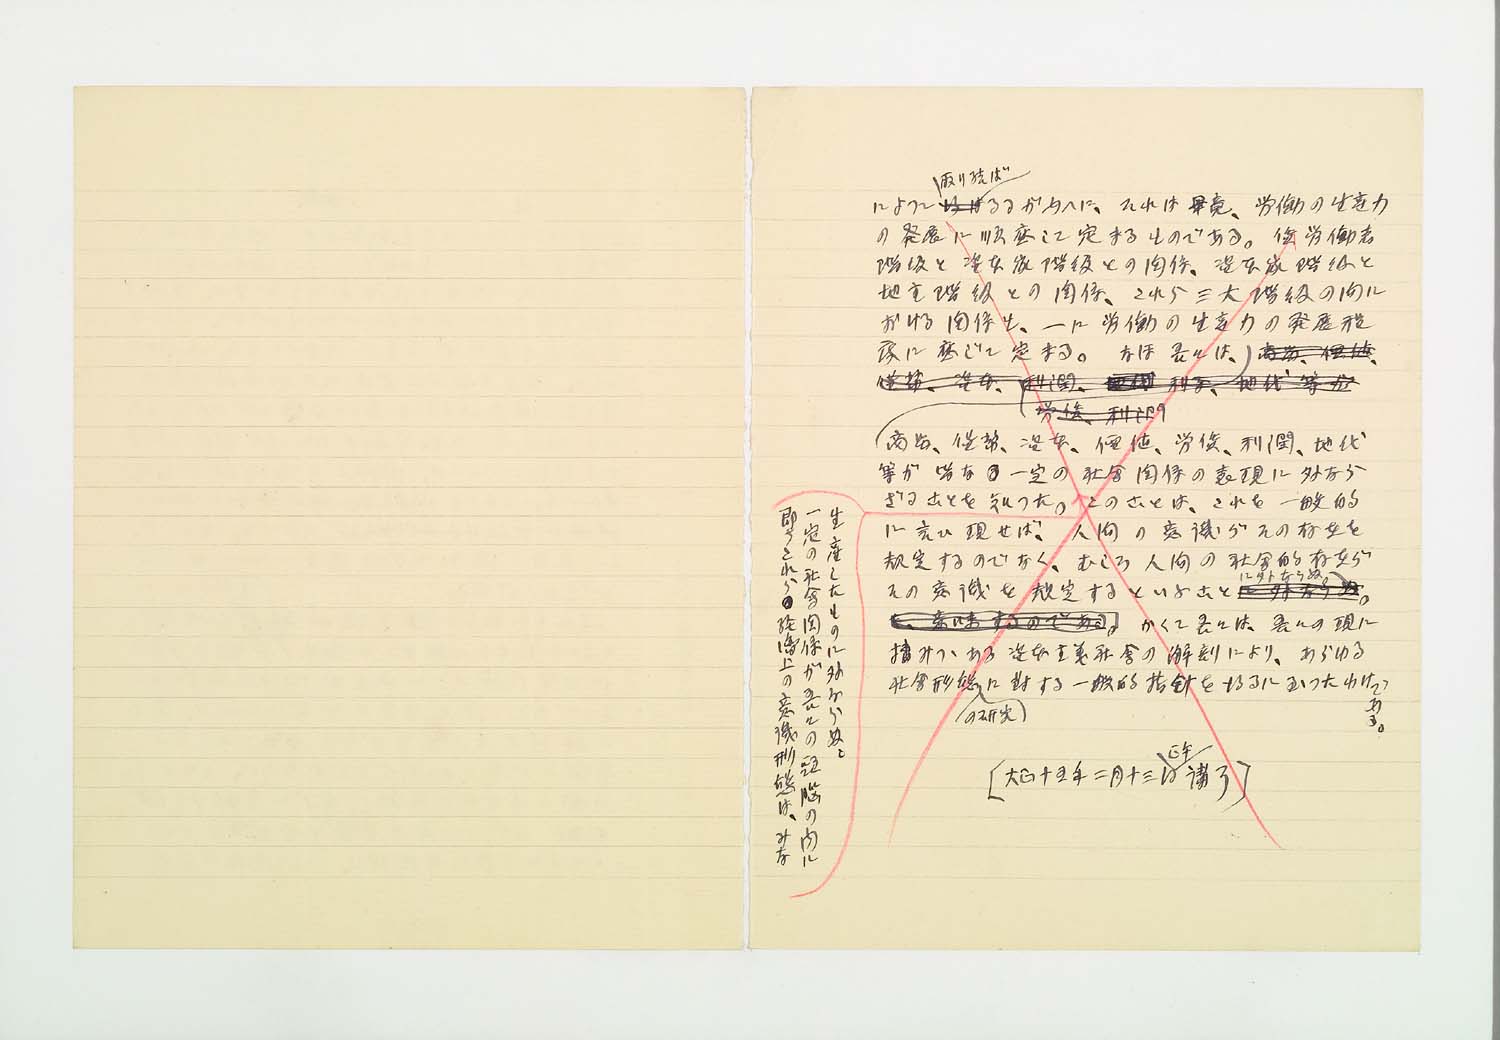 取り結ば
によつてるるが与へに、それは畢竟、労働の生産力
の発展に順応して定まるものである。但労働者
階級と資本家階級との関係、資本家階級と
地主階級との関係、これら三大階級の間に
おける関係も、一に労働の生産力の発展程
度に応じて定まる。なほ吾々は、商品、価値、
貨幣、資本、利潤、利子、地代等が
労賃、利潤
商品、貨幣、資本、価値、労賃、利潤、地代
等が皆な一定の社会関係の表現に外なら
ざることを知つた。このことは、これを一般的
に言ひ現せば、人間の意識がその存在を
規定するのでなく、むしろ人間の社会的存在が
に外ならぬ。
その意識を規定するといふことに外ならぬ。
を意味するのである。かくて吾々は、吾々の現に
棲みつゝある資本主義社会の解剖により、あらゆる
社会形態に対する一般的指針を得るに至つたわけで
ある。
の研究
正午
[大正十五年二月十三日講了]
即ちこれら経済上の意識形態は、みな
一定の社会関係が吾々の頭脳の内に
生産したものに外ならぬ。